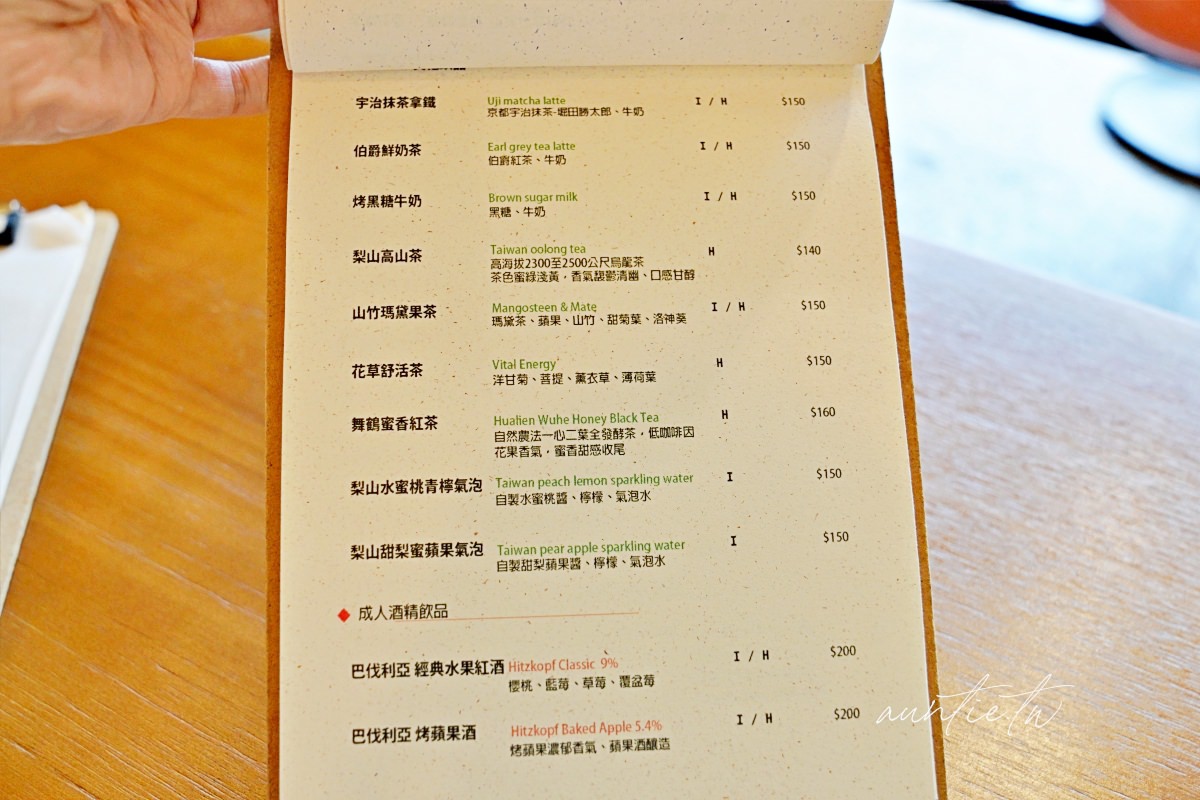 宇治抹茶拿鐵 Uji matcha latte I / H $150
京都宇治抹茶-堀田勝太郎、牛奶
伯爵鮮奶茶 Earl grey tea latte I / H $150
伯爵紅茶、牛奶
烤黑糖牛奶 Brown sugar milk I / H $150
黑糖、牛奶
梨山高山茶 Taiwan oolong tea H $140
高海拔2300至2500公尺烏龍茶
茶色蜜綠淺黃，香氣馥鬱清幽、口感甘醇
山竹瑪黛果茶 Mangosteen & Mate I / H $150
瑪黛茶、蘋果、山竹、甜菊葉、洛神葵
花草舒活茶 Vital Energy H $150
洋甘菊、菩提、薰衣草、薄荷葉
舞鶴蜜香紅茶 Hualien Wuhe Honey Black Tea H $160
自然農法一心二葉全發酵茶，低咖啡因
花果香氣，蜜香甜感收尾
梨山水蜜桃青檸氣泡 Taiwan peach lemon sparkling water I $150
自製水蜜桃醬、檸檬、氣泡水
梨山甜梨蜜蘋果氣泡 Taiwan pear apple sparkling water I $150
自製甜梨蘋果醬、檸檬、氣泡水
◆ 成人酒精飲品
巴伐利亞 經典水果紅酒 Hitzkopf Classic 9% I / H $200
櫻桃、藍莓、草莓、覆盆莓
巴伐利亞 烤蘋果酒 Hitzkopf Baked Apple 5.4% I / H $200
烤蘋果濃郁香氣、蘋果酒釀造
auntie.tw